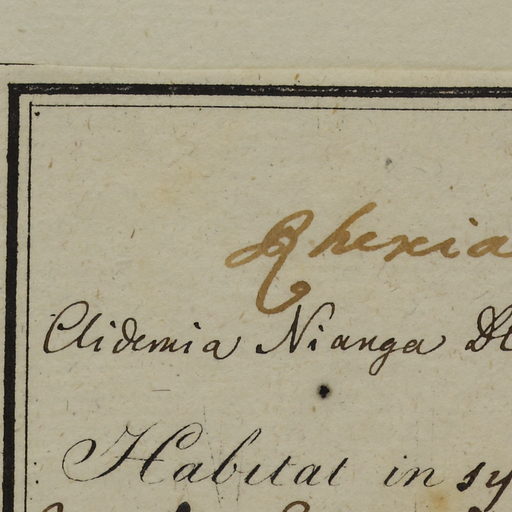 Rhexia
Clidemia Nianga
Habitat in sy